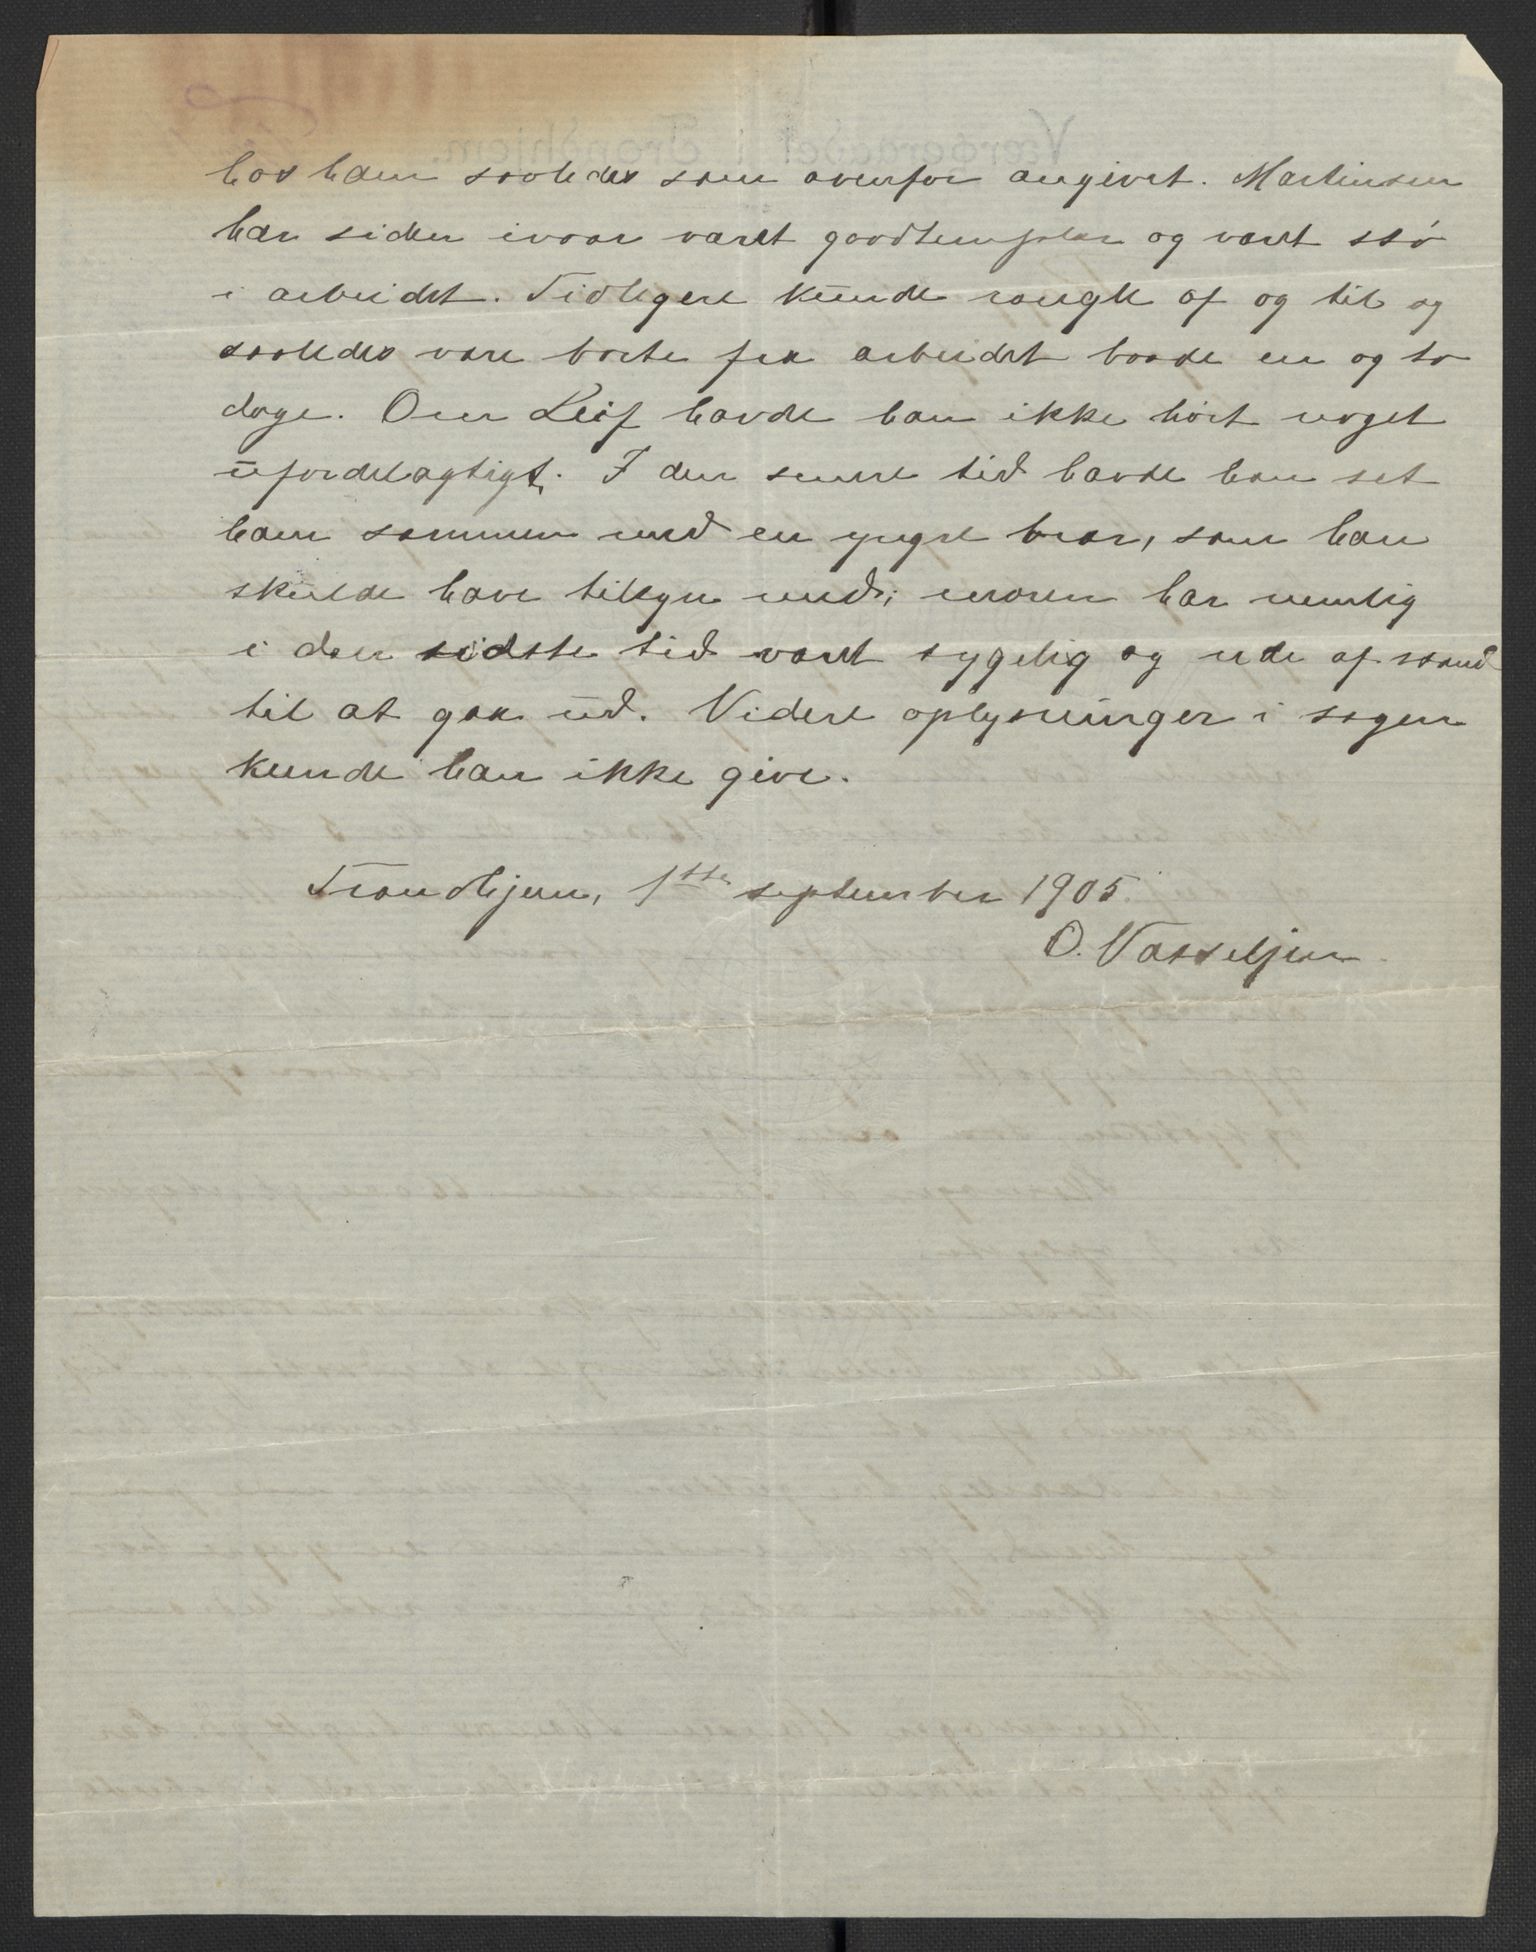 hos ham saaledes som ovenfor angivet. Martinsen
har siden ivaar været goodtemplar og været stø
i arbeidet. Tidligere kunde rangle af og til og
saaledes være borte fra arbeidet baade en og to
dage. Om Leif havde han ikke hørt noget
ufordelagtigt. I den senere tid havde han set
ham sammen med en yngre bror, som han
skulde have tilsyn med; moren har nemlig
i den sidste tid været sygelig og ude af stand
til at gaa ud. Videre oplysninger i sagen
kunde han ikke give.
Trondhjem, 1ste september 1905.
O. Vasseljen